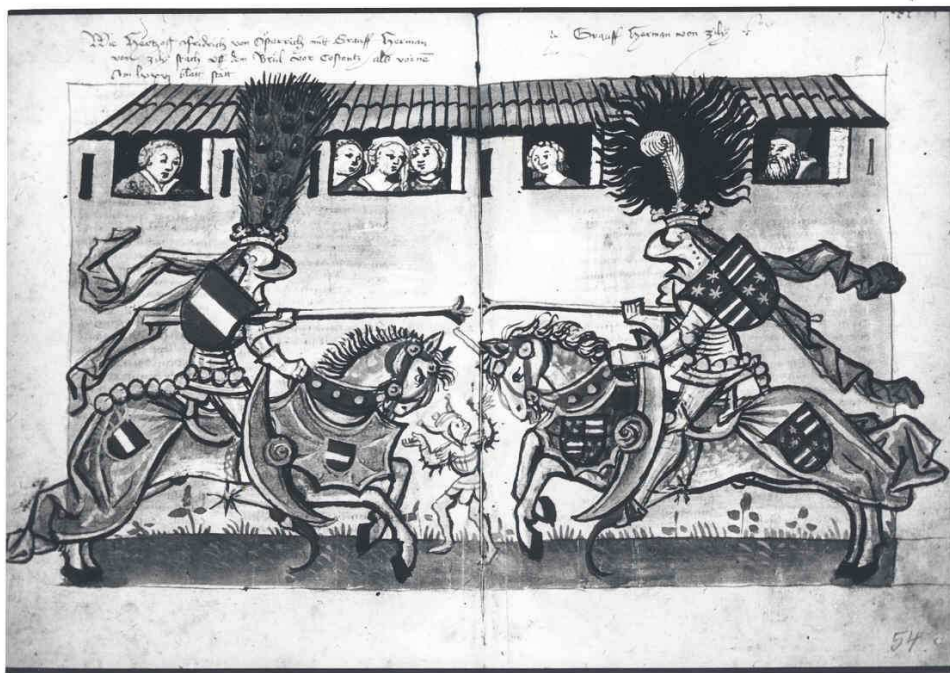 Wie Hertzog Fridrich von Österrich mit Grauff Herman
von Zily stach uf dem Brül vor Costentz als vorne
am blatt statt
Grauff Herman von Zily
54